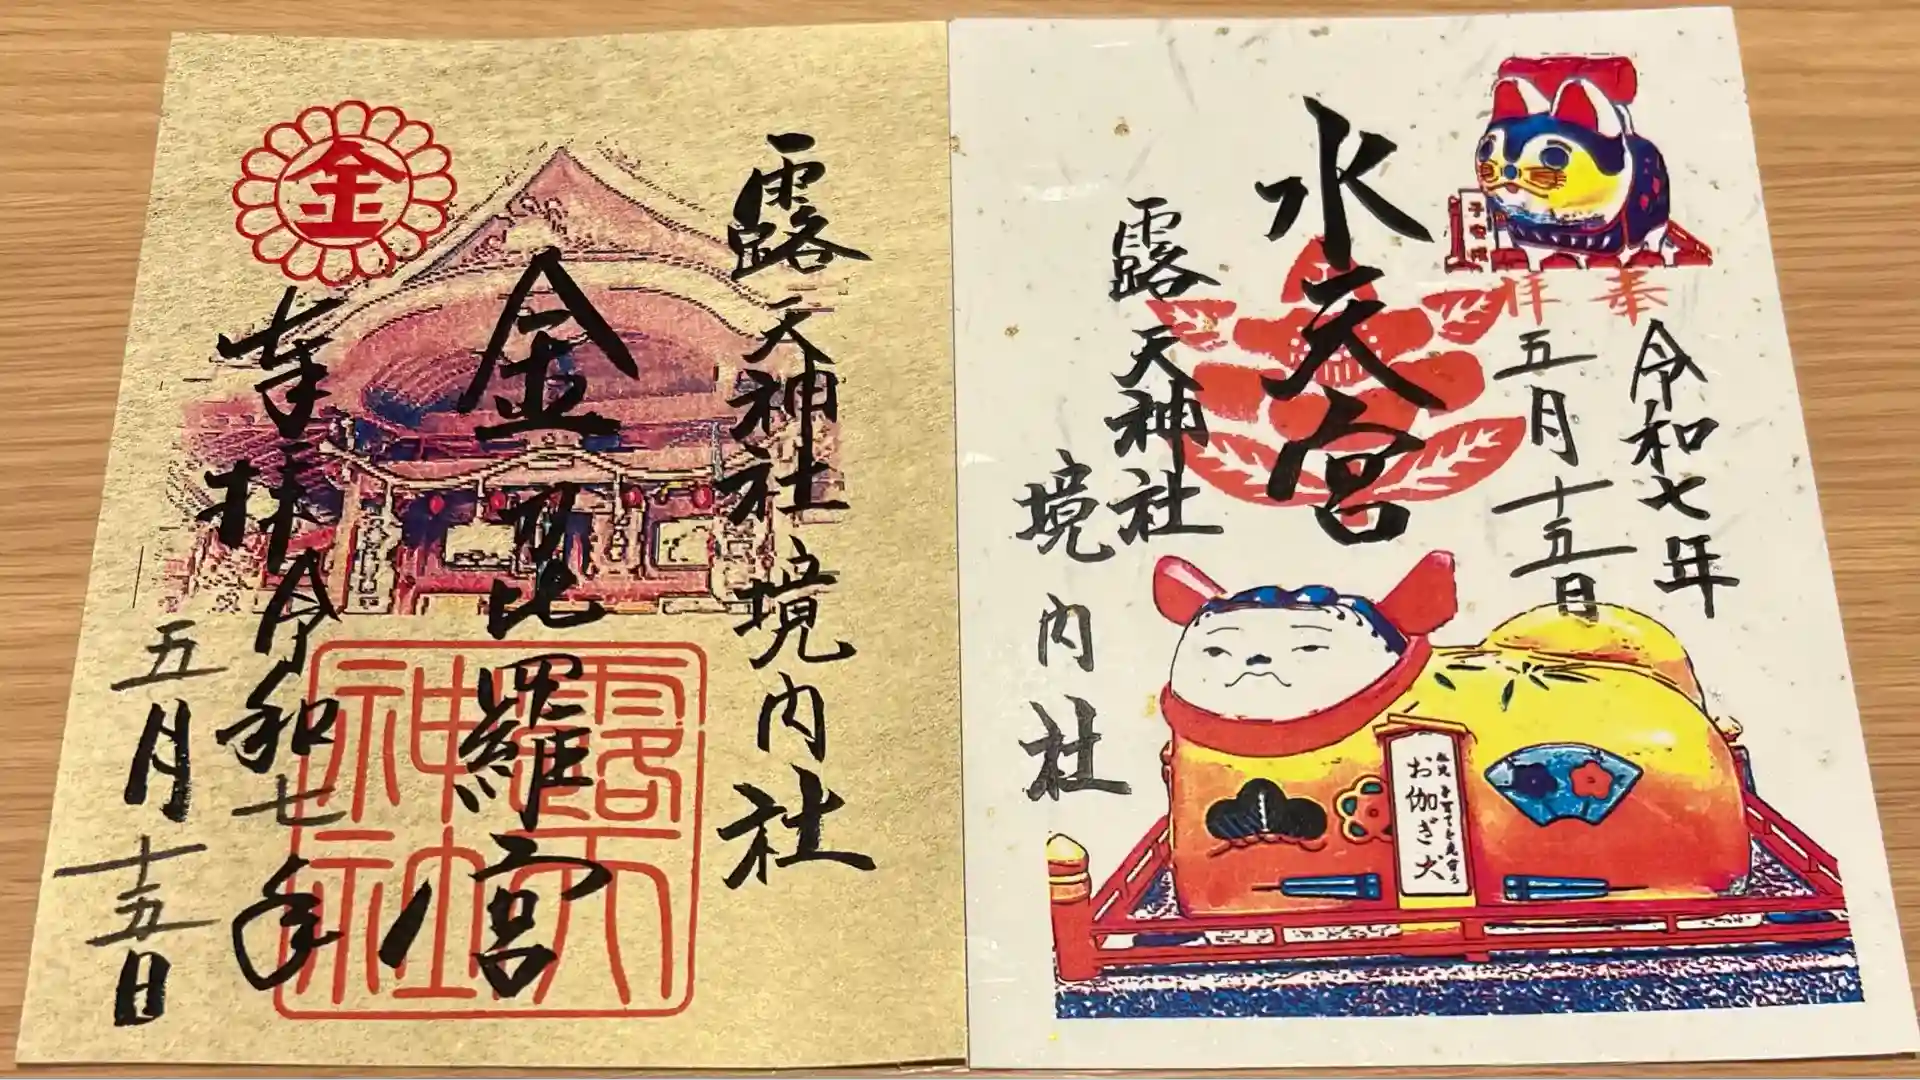 露天神社境内社
金毘羅宮
奉拝 令和七年
五月十五日
金
露天
神社
奉拝
令和七年
五月十五日
水天宮
露天神社
境内社
お伽ぎ犬